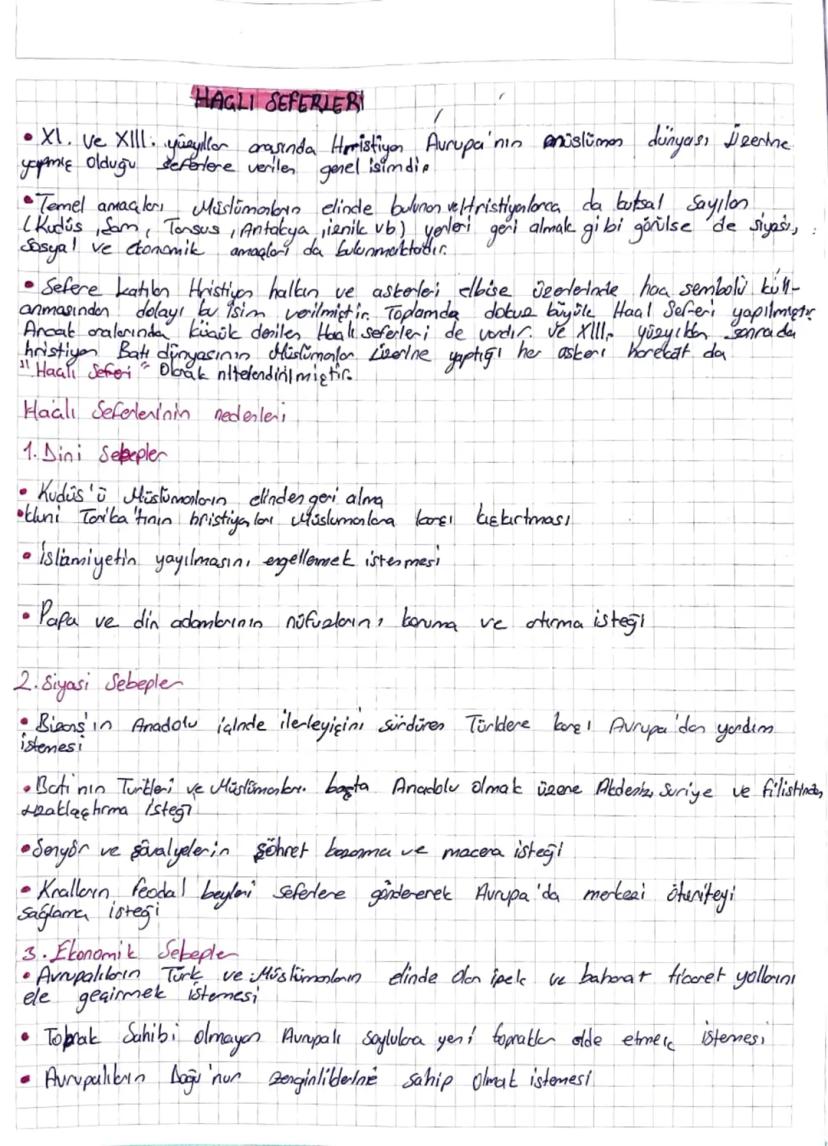 HAÇLI SEFERLERİ
• XI. ve XIII. yüzyıllar arasında Hristiyan Avrupa'nın müslüman dünyası üzerine
yapmış olduğu seferlere verilen genel isimdir.
• Temel amaçları Müslümanların elinde bulunan ve Hristiyanlarca da kutsal sayılan
(Kudüs, Şam, Tarsus, Antakya, iznik vb) yerleri geri almak gibi görülse de siyasi,
sosyal ve ekonomik amaçları da bulunmaktadır.
• Sefere katılan Hristiyan halkın ve askerleri elbise üzerlerinde haç sembolü kull-
anmasından dolayı bu isim verilmiştir. Toplamda dokuz büyük Haçlı Seferi yapılmıştır.
Ancak aralarında küçük denilen Haçlı seferleri de vardır. ve XIII. yüzyıldan sonra da
hristiyan Batı dünyasının Müslümanlar üzerine yaptığı her askeri harekat da
"Haçlı Seferi" Olarak nitelendirilmiştir.
Haçlı Seferlerinin nedenleri
1. Dini Sebepler
• Kudüs'ü Müslümanların elinden geri alma
• Kluni Tarika'tının hristiyanları Müslümanlara karşı kışkırtması
• İslamiyetin yayılmasını engellemek istenmesi
• Papa ve din adamlarının nüfuzlarını koruma ve artırma isteği
2. Siyasi Sebepler
• Bizans'ın Anadolu içinde ilerleyişini sürdüren Türklere karşı Avrupa'dan yardım
istemesi
• Batı'nın Türkleri ve Müslümanları başta Anadolu olmak üzere Akdeniz, Suriye ve filistinden,
uzaklaştırma isteği
• Senyör ve şövalyelerin şöhret kazanma ve macera isteği
• Kralların feodal beyleri seferlere göndererek Avrupa'da merkezi otoriteyi
sağlama isteği
3. Ekonomik Sebepler
• Avrupalıların Türk ve Müslümanların elinde olan ipek ve baharat ticaret yollarını
ele geçirmek istemesi
• Toprak Sahibi olmayan Avrupalı soylulara yeni topraklar elde etmek istemesi
• Avrupalıların Doğu'nun zenginliklerine sahip olmak istemesi